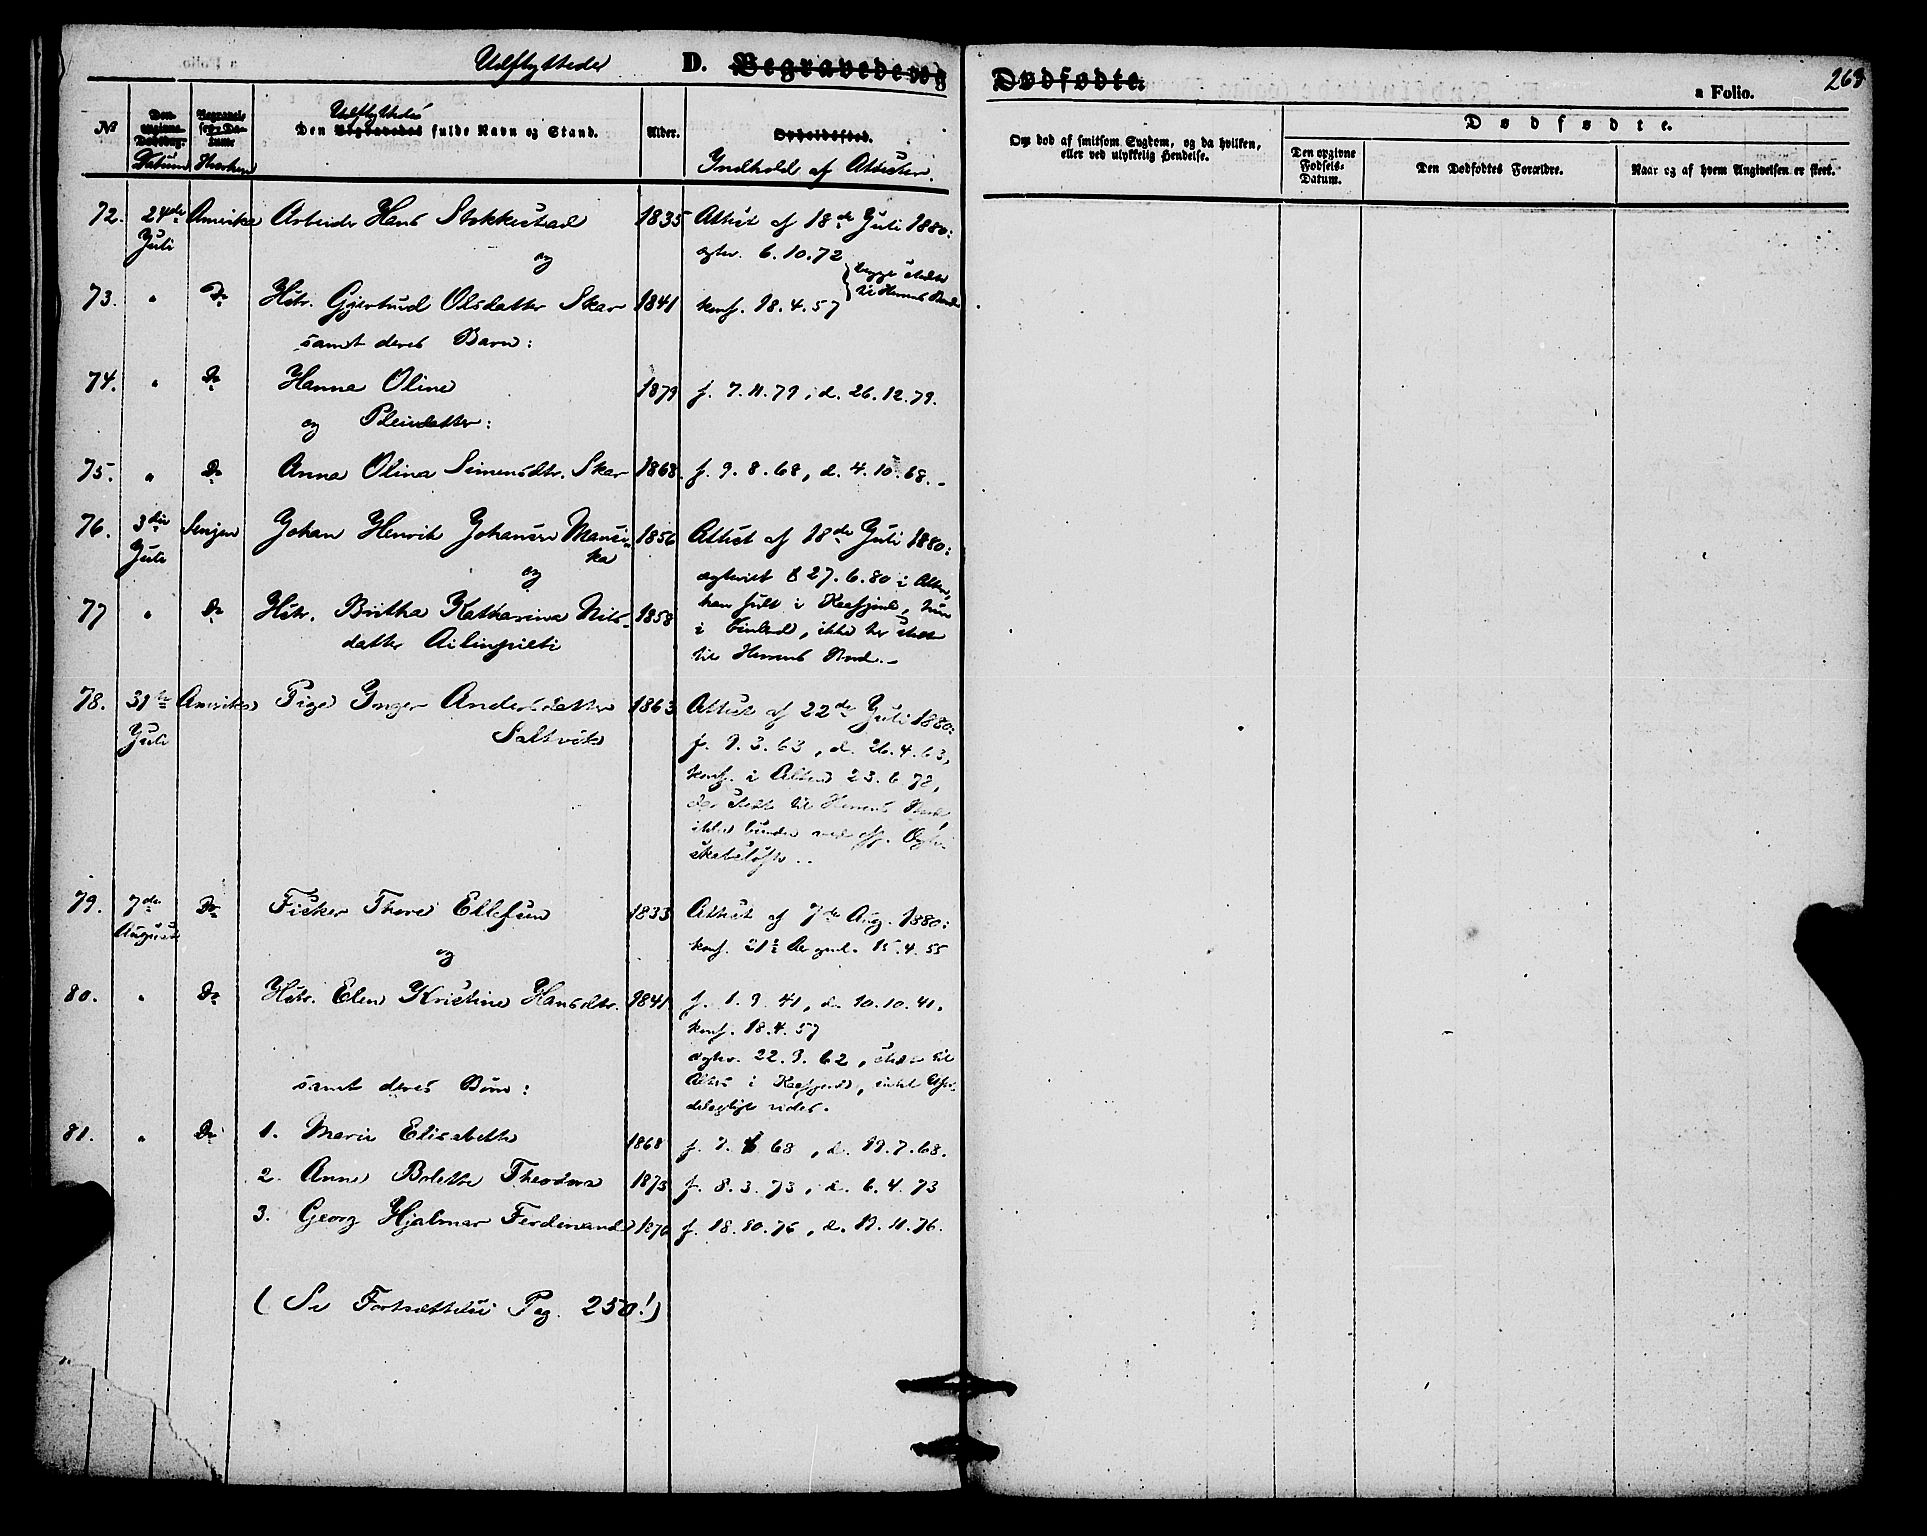 Udflyttede D. Begravede og Dødfødte. 263
a Folio.
No Den opgivne Dødsdag. Datum Begravelsens Datum Hvorhen Udflyttedes Den Begravedes fulde Navn og Stand. Alder. Opholdssted. Indhold af Attester.
Om død af smitsom Sygdom, og da hvilken, eller ved ulykkelig Hendelse.
Dødfødte.
Den opgivne Fødsels-Datum. Den Dødfødtes Forældre. Naar og af hvem Angivelsen er skeet.
72. 24de Juli Amerika Arbeider Hans Stokkestad 1835 Attest af 18de Juli 1880:
og egtev. 6.10.72
begge stedte til Herrens Bord
73. " Do Hstr. Gjertrud Olsdatter Skar 1841 konf. 18.4.57
samt deres Barn:
74. " Do Hanna Oline 1879 f. 7.11.79, d. 26.12.79.
og Pleiedatter:
75. " Do Anna Olina Simensdtr. Skar 1868. f. 9.8.68, d. 4.10.68.-
76. 3die Juli Senjen Johan Henrik Johansen 1856 Attest af 18de Juli 1880:
og egteviet 27.6.80 i Alten,
77 " Do Hstr. Britha Katharina Nils- 1858 han født i Kaafjord, hun
datter i Finland, ikke her stedte
til Herrens Bord.-
78. 31te Juli Amerika Pige Inger Andersdatter 1863 Attest af 22de Juli 1880:
Saltvik f. 9.3.63, d. 26.4.63,
konf. i Alten 23.6.78,
der stedt til Herrens Bord,
ikke bunden ved Egte-
skabsløfte..
79. 7de August Do Fisker Thore Ellefsen 1833 Attest af 7de Aug. 1880:
og konf. 21½ Aar gml. 15.4.55
80. " Do Hstr. Elen Kristine Hansdtr. 1841. f. 1.9.41, d. 10.10.41,
konf. 18.4.57
egtev. 22.9.62, stedt til
samt deres Børn: Alters i Kaafjord, intet Ufor-
delagtigt vides.
81. " Do 1. Marie Elisabeth 1868 f. 7. 68, d. 19.7.68.
2. Anne Bolette Theodora 1873 f. 8.3.73, d. 6.4.73
3. Georg Hjalmar Ferdinand 1876 f. 18.10.76, d. 11.76.
( Se Fortsættelse Pag. 250! )